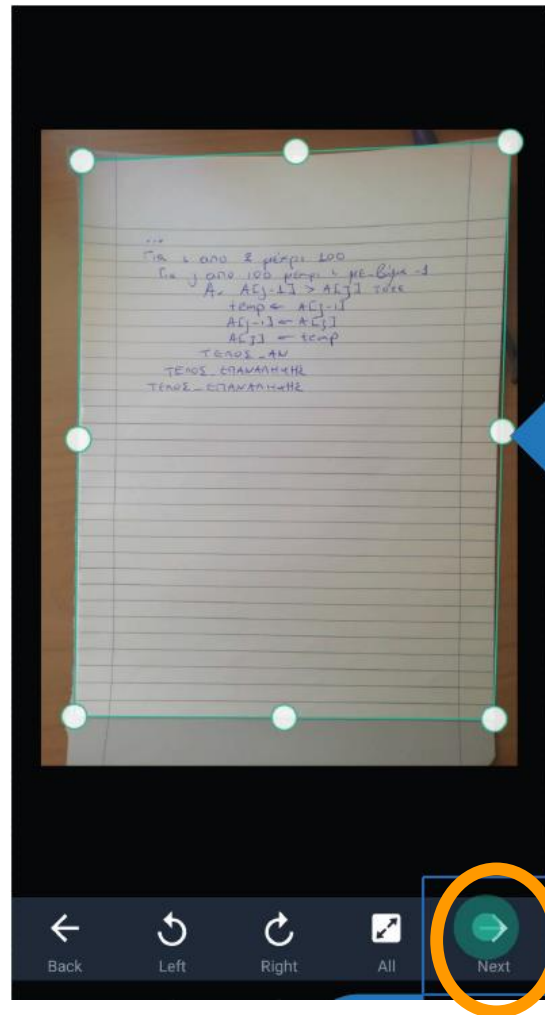 ...
Για ι απο 2 μέχρι 100
Για j απο 100 μεχρι ι με_βήμα -1
Αν A[j-1] > A[j] τοτε
temp ← A[j-1]
A[j-1] ← A[j]
A[j] ← temp
ΤΕΛΟΣ_ΑΝ
ΤΕΛΟΣ_ΕΠΑΝΑΛΗΨΗΣ
ΤΕΛΟΣ_ΕΠΑΝΑΛΗΨΗΣ
Back Left Right All Next